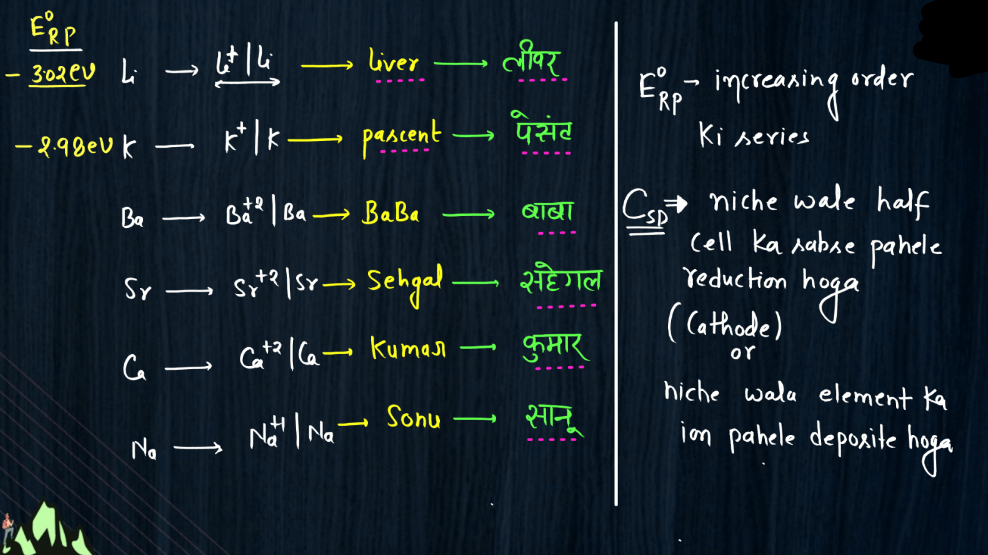 E°RP
- 3.02eV Li → Li+|Li → liver → लीवर
- 2.98eV K → K+|K → pascent → पेसंट
Ba → Ba+2|Ba → BaBa → बाबा
Sr → Sr+2|Sr → Sehgal → सहेगल
Ca → Ca+2|Ca → Kumar → कुमार
Na → Na+1|Na → Sonu → सानू
E°RP - increasing order
Ki series
CSP ⇒ niche wale half
cell Ka sabse pahele
reduction hoga
(Cathode)
or
niche wala element Ka
ion pahele deposite hoga